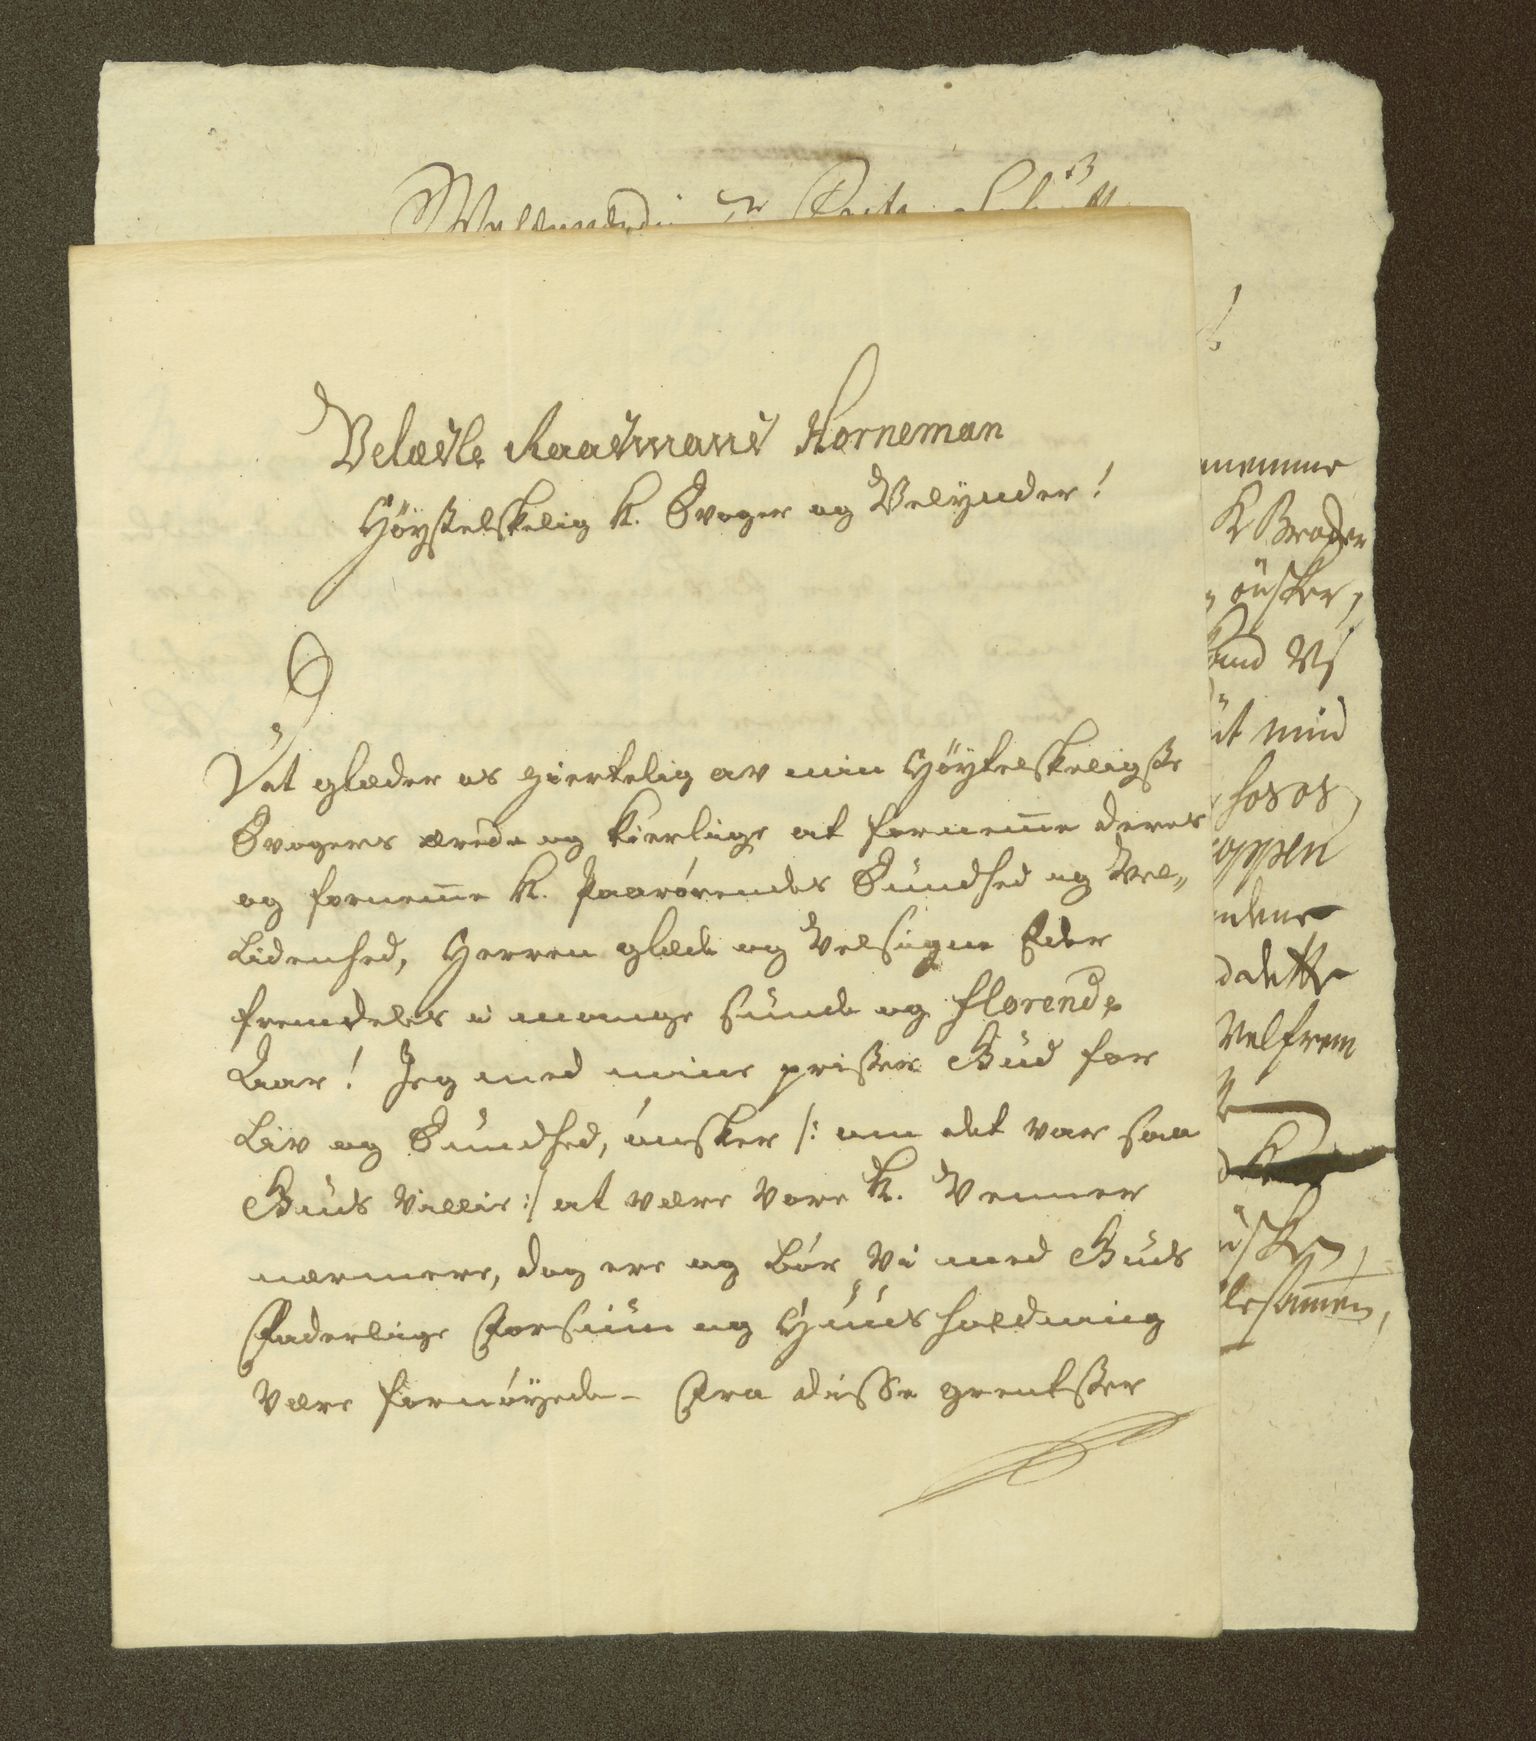 Velædle Raadmand Horneman
Høystelskelig K. Svoger og Velÿnder!
Det glæder os hiertelig av min Høÿtelskeligste
Svogers ærede og kierlige at fornemme deres
og fornemme K. Paarørendes Sundhed og Vel„
Lidenhed, Herren glæde og Velsigne Eder
fremdeles i mange sunde og florende
Aar! Jeg med mine priser Gud for
Liv og Sundhed, ønsker /: om det var saa
Guds Villie :/ at være vore K. Venner
nærmere, dog ere og bør Vi med Guds
Faderlige Forsiun og Huusholdning
være fornøyede – Fra disse grentsser
nemme
K Broder
ønsker,
und Vj
it mind
hos os,
appen
ndene
dette
Velfrem
ønsker,